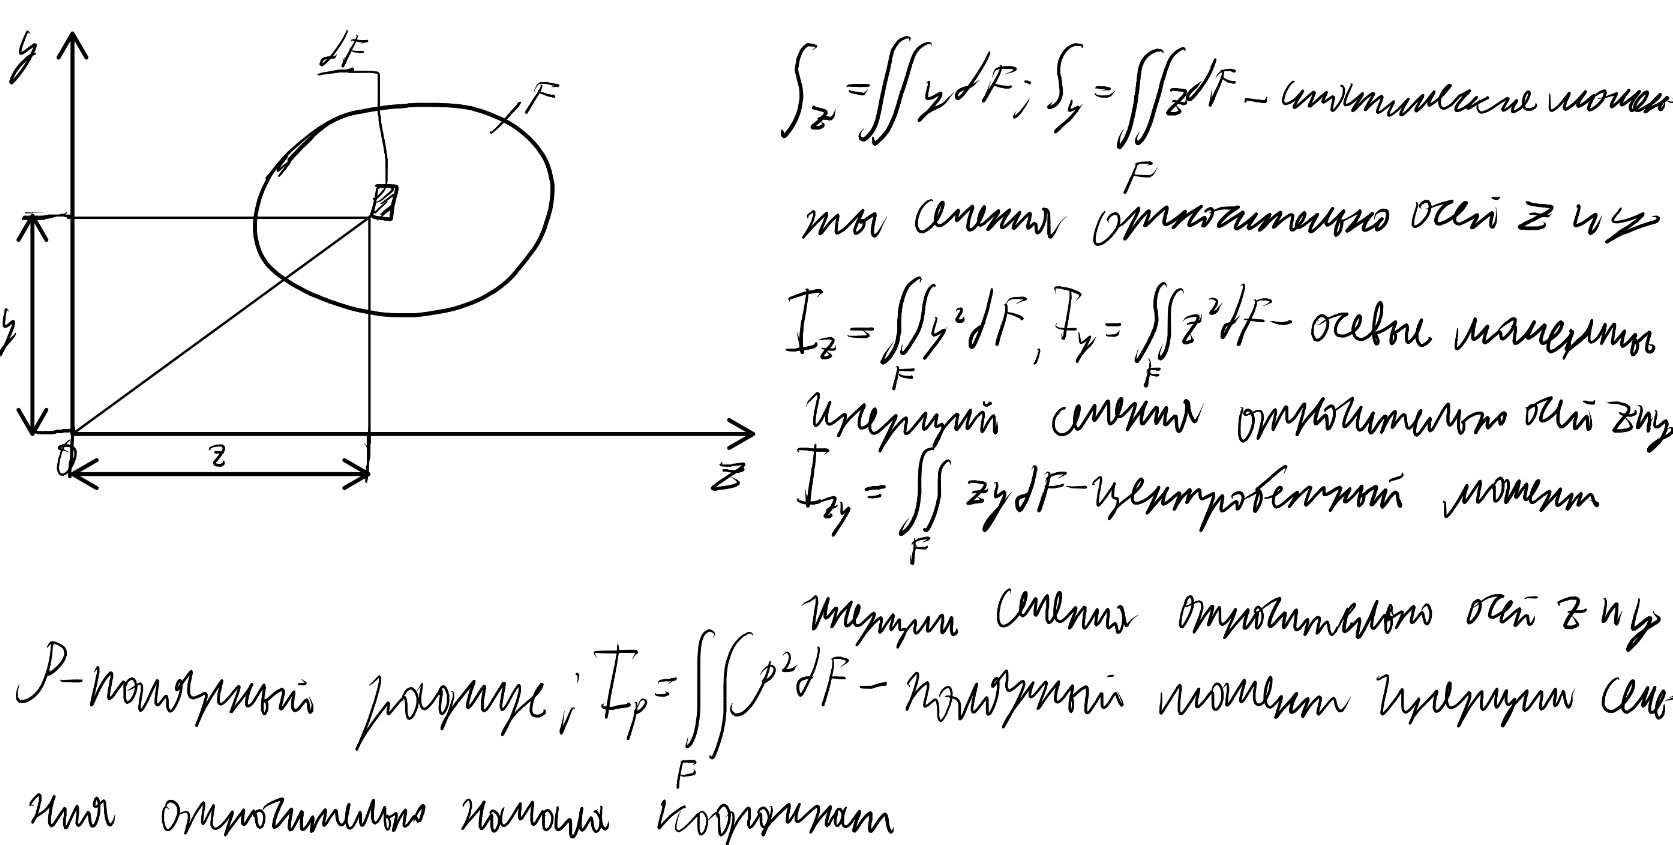 y
dF
F
y
0
z
z
S_z = ∬ y dF; S_y = ∬_F z dF – статические момен
ты сечения относительно осей z и y
I_z = ∬_F y² dF, I_y = ∬_F z² dF – осевые моменты
инерций сечения относительно осей z и y
I_zy = ∬_F zy dF – центробежный момент
инерции сечения относительно осей z и y
ρ – полярный радиус; I_p = ∬_F ρ² dF – полярный момент инерции сече
ния относительно начала координат